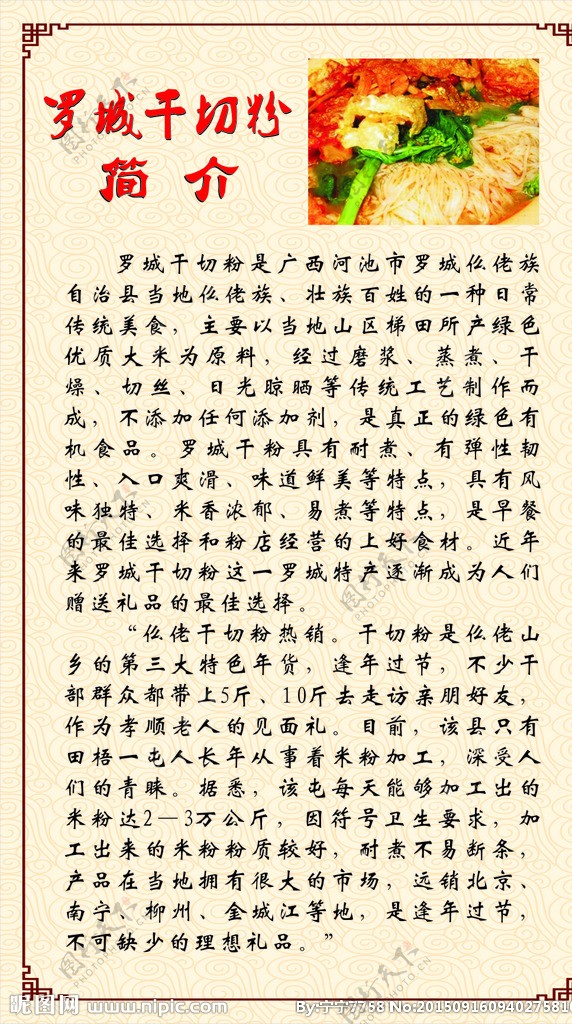 罗城干切粉
简 介
罗城干切粉是广西河池市罗城仫佬族
自治县当地仫佬族、壮族百姓的一种日常
传统美食，主要以当地山区梯田所产绿色
优质大米为原料，经过磨浆、蒸煮、干
燥、切丝、日光晾晒等传统工艺制作而
成，不添加任何添加剂，是真正的绿色有
机食品。罗城干粉具有耐煮、有弹性韧
性、入口爽滑、味道鲜美等特点，具有风
味独特、米香浓郁、易煮等特点，是早餐
的最佳选择和粉店经营的上好食材。近年
来罗城干切粉这一罗城特产逐渐成为人们
赠送礼品的最佳选择。
“仫佬干切粉热销。干切粉是仫佬山
乡的第三大特色年货，逢年过节，不少干
部群众都带上5斤、10斤去走访亲朋好友，
作为孝顺老人的见面礼。目前，该县只有
田梧一屯人长年从事着米粉加工，深受人
们的青睐。据悉，该屯每天能够加工出的
米粉达2—3万公斤，因符号卫生要求，加
工出来的米粉粉质较好，耐煮不易断条，
产品在当地拥有很大的市场，远销北京、
南宁、柳州、金城江等地，是逢年过节，
不可缺少的理想礼品。”
昵图网 www.nipic.com
By:宁宁7758 No:20150916094027581